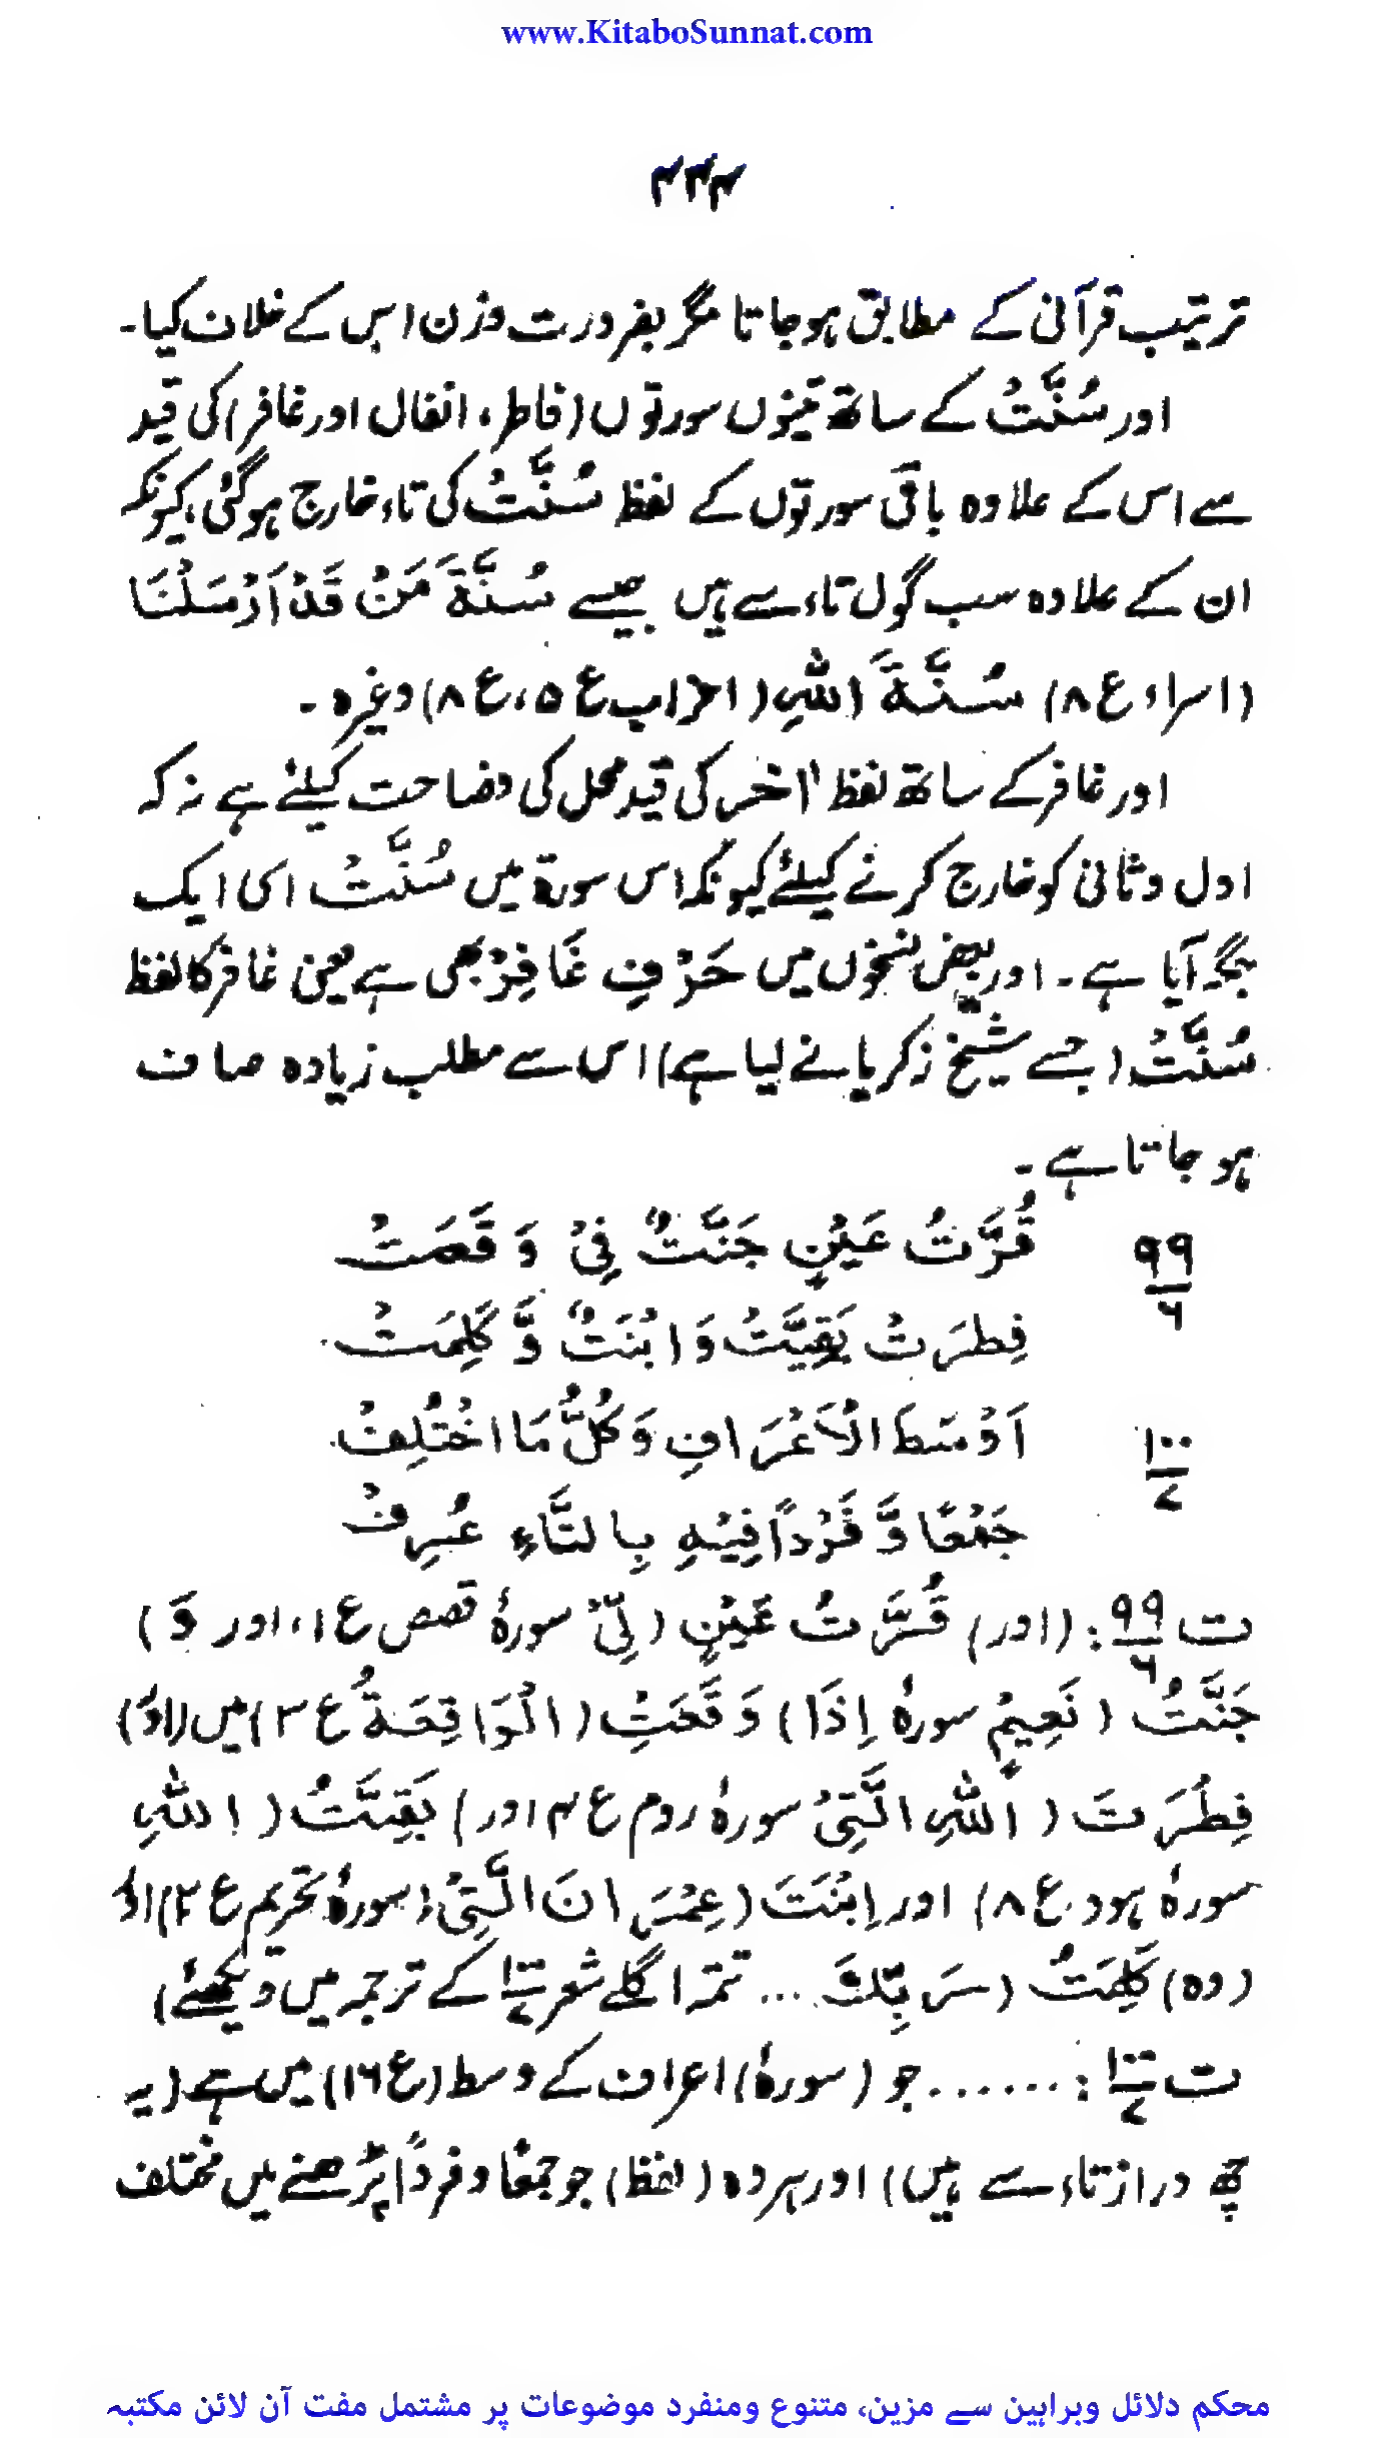 www.KitaboSunnat.com
۴۳۴
ترتیب قرآنی کے مطابق ہوجاتا مگر بضرورت وزن اس کے خلاف کیا۔
اور سُنَّتُ کے ساتھ تینوں سورتوں (فاطر، انفال اور غافر) کی قید
سے اس کے علاوہ باقی سورتوں کے لفظ سُنَّتُ کی تاء خارج ہوگئی، کیونکہ
ان کے علاوہ سب گول تاء سے ہیں جیسے سُنَّةَ مَنْ قَدْ اَرْسَلْنَا
(اسراء ع ۸) سُنَّةَ اللهِ (احزاب ع ۵، ع ۸) وغیرہ۔
اور غافر کے ساتھ لفظ اٰخر کی قید محل کی وضاحت کیلئے ہے نہ کہ
اول و ثانی کو خارج کرنے کیلئے کیونکہ اس سورۃ میں سُنَّتُ اسی ایک
جگہ آیا ہے۔ اور بعض نسخوں میں حَرْفِ غَافِرْ بھی ہے یعنی غافر کا لفظ
سُنَّتُ (جسے شیخ زکریا نے لیا ہے) اس سے مطلب زیادہ صاف
ہو جاتا ہے۔
۹۹/۶ قُرَّتُ عَيْنٍ جَنَّتٌ فِىْ وَقَعَتْ
فِطْرَتْ بَقِيَّتْ وَابْنَتٌ وَّكَلِمَتْ
۱۰۰/۷ اَوْسَطَ الْاَعْرَافِ وَكُلُّ مَا اخْتُلِفْ
جَمْعًا وَّفَرْدًا فِيْهِ بِالتَّاءِ عُرِفْ
ت ۹۹/۶: (اور) قُرَّتُ عَيْنٍ (لِّىْ سورۂ قصص ع ۱، اور وَ)
جَنَّتُ (نَعِيْمٍ سورۂ اِذَا) وَقَعَتِ (الْوَاقِعَةُ ع ۳) میں (اور)
فِطْرَتَ (اللهِ الَّتِىْ سورۂ روم ع ۴ اور) بَقِيَّتُ (اللهِ
سورۂ ہود ع ۸) اور اِبْنَتَ (عِمْرَانَ الَّتِىْ سورۂ تحریم ع ۲) اور
(وہ) كَلِمَتُ (رَبِّكَ ... تتمہ اگلے شعر ۱۰۰/۷ کے ترجمہ میں دیکھئے)
ت ۱۰۰/۷: ...... جو (سورۂ) اعراف کے وسط (ع ۱۶) میں ہے (یہ
چھ دراز تاء سے ہیں) اور ہر وہ (لفظ) جو جمعًا و فردًا پڑھنے میں مختلف
محکم دلائل وبراہین سے مزین، متنوع ومنفرد موضوعات پر مشتمل مفت آن لائن مکتبہ